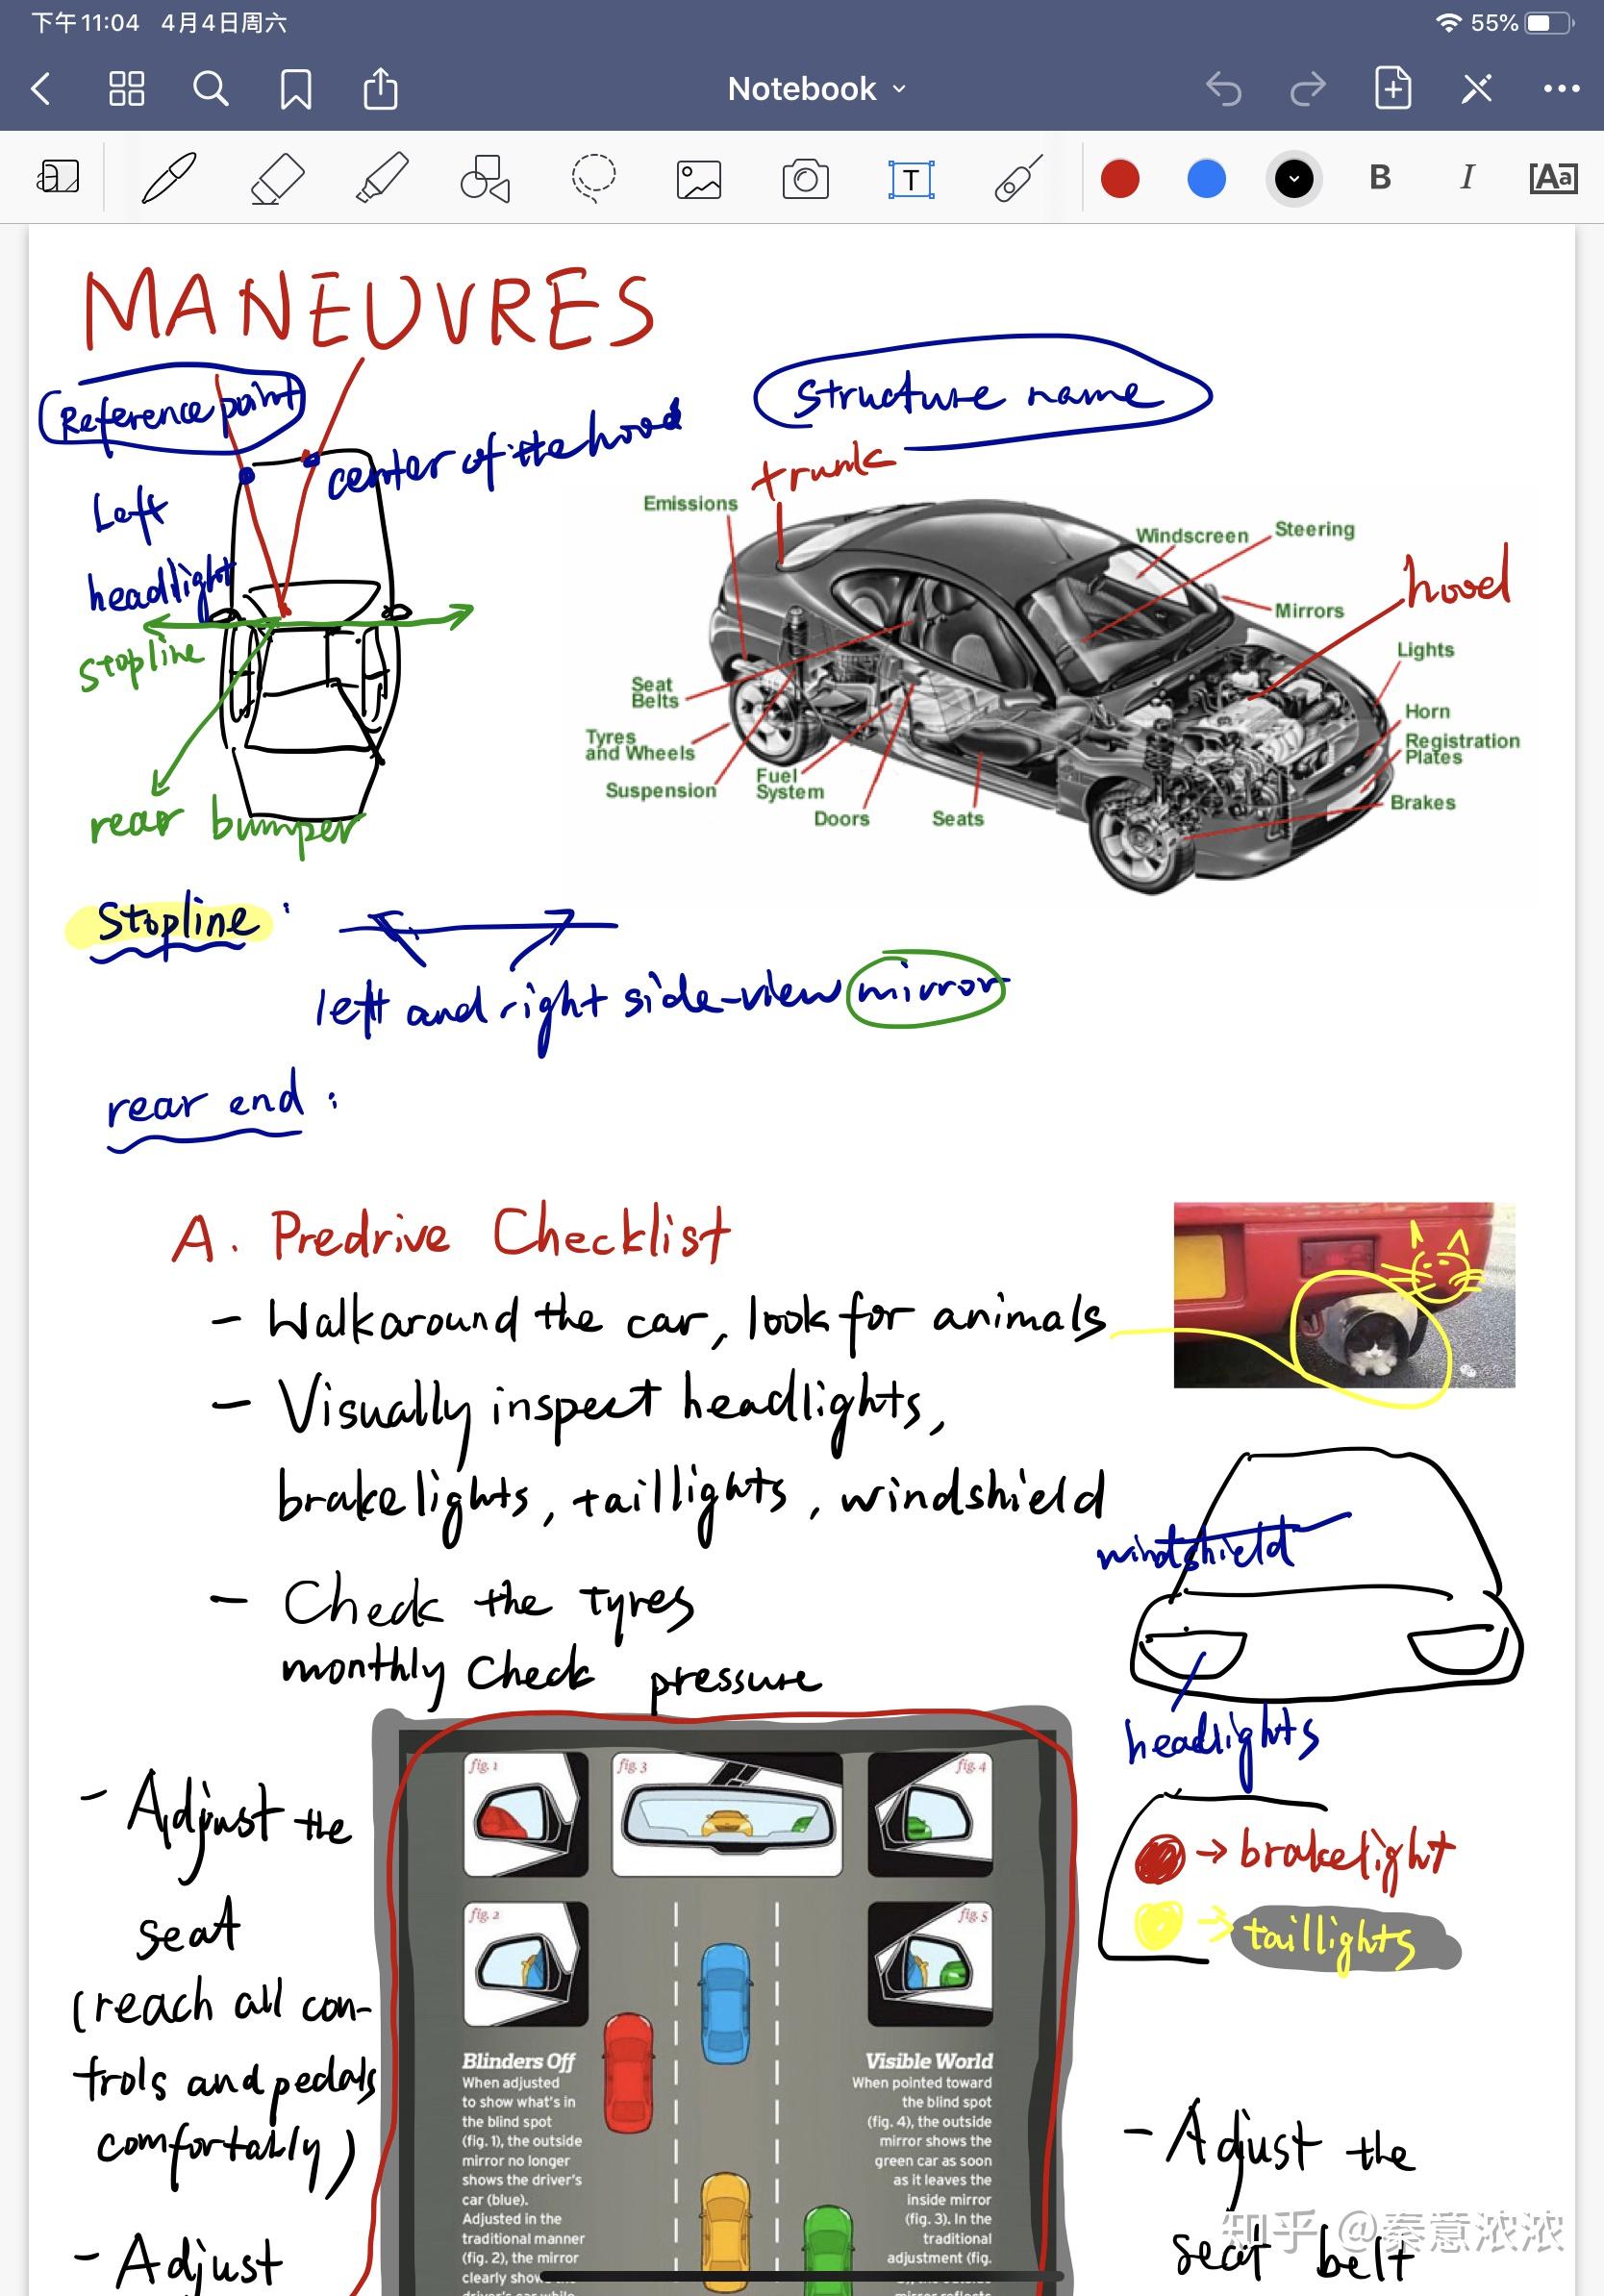 下午11:04 4月4日周六
55%
Notebook
T
B I Aa
MANEUVRES
Reference point
Structure name
center of the hood
trunk
Left
headlight
stopline
rear bumper
Emissions
Windscreen
Steering
hood
Mirrors
Lights
Seat
Belts
Horn
Registration
Plates
Tyres
and Wheels
Suspension
Fuel
System
Doors
Seats
Brakes
Stopline :
left and right side-view mirror
rear end :
A. Predrive Checklist
- Walk around the car, look for animals
- Visually inspect headlights,
brakelights, taillights, windshield
windshield
- Check the tyres
monthly check pressure
headlights
→ brakelight
→ taillights
- Adjust the
seat
(reach all con-
trols and pedals
comfortably)
- Adjust
fig. 1
fig. 3
fig. 4
fig. 2
fig. 5
Blinders Off
When adjusted
to show what's in
the blind spot
(fig. 1), the outside
mirror no longer
shows the driver's
car (blue).
Adjusted in the
traditional manner
(fig. 2), the mirror
clearly shows
Visible World
When pointed toward
the blind spot
(fig. 4), the outside
mirror shows the
green car as soon
as it leaves the
inside mirror
(fig. 3). In the
traditional
adjustment (fig.
- Adjust the
seat belt
知乎 @秦意浓浓